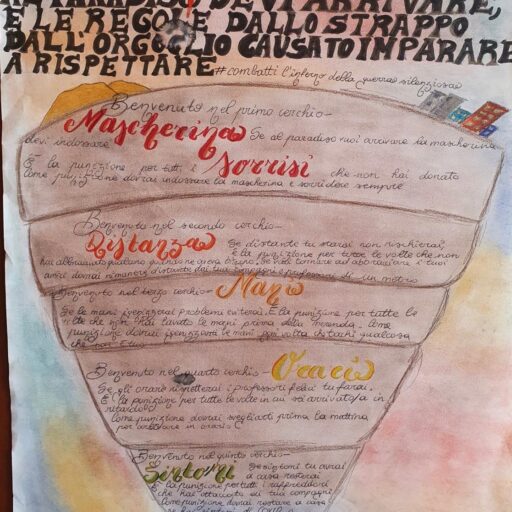 AL PARADISO DEVI ARRIVARE,
E LE REGOLE DALLO STRAPPO
DALL'ORGOGLIO CAUSATO IMPARARE
A RISPETTARE #combatti l'inferno della guerra silenziosa
Benvenuto nel primo cerchio-
Mascherina Se al paradiso vuoi arrivare la mascherina
devi indossare.
È la punizione per tutti i sorrisi che non hai donato
come punizione dovrai indossare la mascherina e sorridere sempre
Benvenuto nel secondo cerchio-
Distanza Se distante tu starai non rischierai,
È la punizione per tutte le volte che non
hai abbracciato qualcuno quando ne aveva bisogno. Se vuoi tornare ad abbracciare i tuoi
amici dovrai rimanere distante dai tuoi compagni e professori di un metro
Benvenuto nel terzo cerchio- Mani
Se le mani igienizzerai problemi eviterai. È la punizione per tutte le
volte che non hai lavato le mani prima della merenda. Come
punizione dovrai igienizzare le mani ogni volta che tocchi qualcosa
che non è tuo
Benvenuto nel quarto cerchio- Orario
Se gli orari rispetterai i professori felici tu farai.
È la punizione per tutte le volte in cui sei arrivato/a in
ritardo
Come punizione dovrai svegliarti prima la mattina
per arrivare in orario
Benvenuto nel quinto cerchio-
Sintomi Se sintomi tu avrai
a casa resterai
È la punizione per tutti i raffreddori
che hai attaccato ai tuoi compagni
Come punizione dovrai restare a casa
se hai sintomi di